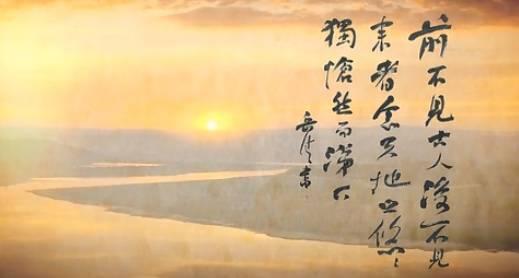 前不見古人後不見
来者念天地之悠々
獨愴然而涕下
岳書